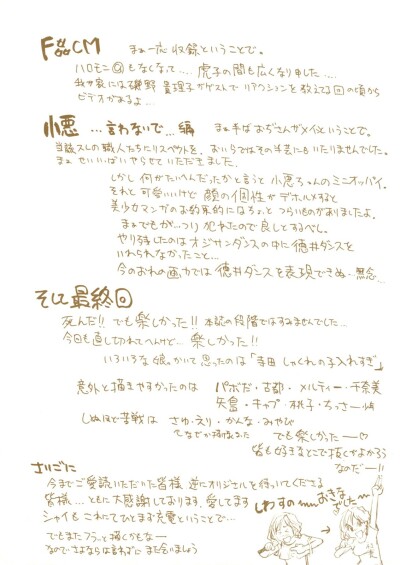 F CM まぁ一応収録ということで。
ハロモニ@もなくなって.... 虎子の間も広くなりました....
我が家には磯野 貴理子がゲストで リアクションを教える回の頃から
ビデオがあるよ...
小悪 ...言わないで...編 まぁ手ばおぢさんがメインということで。
当該スレの職人たちにリスペクトを、おいらではその半芸にもいたりませんでした。
まぁ せいいっぱいやらせていただきました。
しかし 何がたいへんだったかと言うと 小悪ちゃんのミニオッパイ。
それと 可愛いいけど 顔の個性がデホルメすると
美少女マンガのお約束的になるちょっと つらいものがありましたよ。
まぁでもが...つり 犯れたので良しとするべし。
やり残したのは オジサンダンスの中に 徳井ダンスを
いれられなかったこと...
今のおれの画力では 徳井ダンスを表現できぬ…無念...
そして最終回
死んだ!! でも楽しかった!! 本誌の段階ではすみませんでした...
今日も直し切れてへんけど... 楽しかった!!
いろいろな娘。かいて思ったのは「寺田 しゃくれの子入れすぎ」
意外と描きやすかったのは パポだ・古都・メルティー・千奈美
矢島・キャプ・桃子・ちっさー
しぬほど苦戦は さゆ・えり・かんな・みやび
でも楽しかったー♡
皆も好きなとこで抜くがよかろう
なのだー!!
さいごに
今までご愛読いただいた皆様 逆にオリジナルを待っていてくださる
皆様... ともに大感謝しております、愛してます
シャイも これにてひとまず充電ということで...
でもまたフラっと描くかもな—
なのでさよならは言わずに また会いましょう
しわすの
おきな
でした